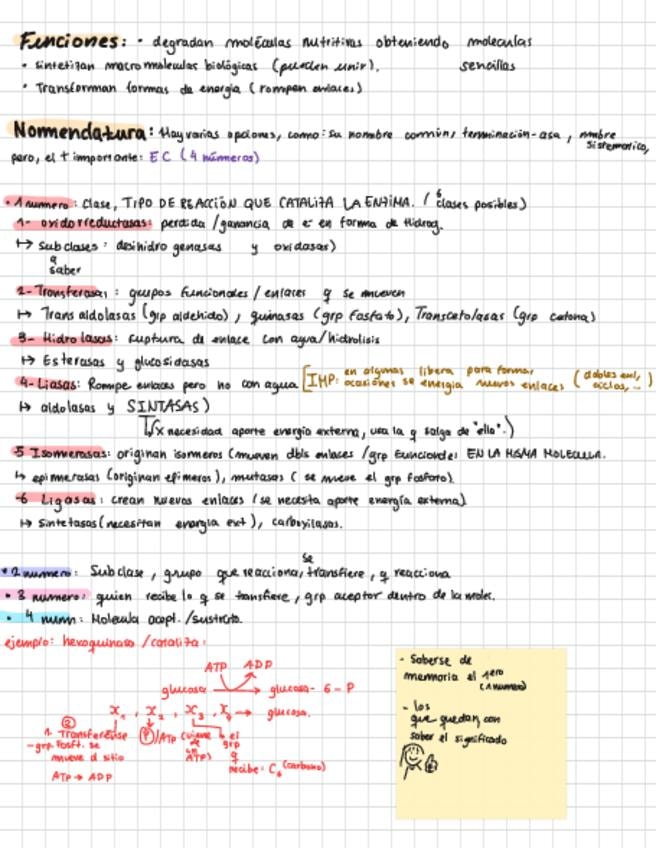 Funciones: • degradan moléculas nutritivas obteniendo moleculas
• sintetizan macromoleculas biológicas (pueden unir). sencillas
• Transforman formas de energia (rompen enlaces)
Nomenclatura: Hay varias opciones, como: su nombre común, terminación-asa, nombre sistematico,
pero, el + importante: EC (4 números)
• 1 numero: clase, TIPO DE REACCIÓN QUE CATALIZA LA ENZIMA. (6 clases posibles)
1- oxidorreductasas: perdida /ganancia de e- en forma de Hidrog.
↦ subclases: deshidrogenasas y oxidasas)
q
saber
2- Transferasas: grupos funcionales / enlaces q se mueven
↦ Transaldolasas (grp aldehido), quinasas (grp fosfato), Transcetolasas (grp cetona)
3- Hidrolasas: ruptura de enlace con agua/hidrolisis
↦ Esterasas y glucosidasas
4- Liasas: Rompe enlaces pero no con agua [IMP: en algunas ocasiones se libera energia para formar nuevos enlaces (dobles enl, ciclos, ...)
↦ aldolasas y SINTASAS)
↳ x necesidad aporte energia externa, usa la q salga de "ello".)
5 Isomerasas: originan isomeros (mueven dbls enlaces /grp funcionales EN LA MISMA MOLECULA.
↳ epimerasas (originan epimeros), mutasas (se mueve el grp fosfato).
6 Ligasas: crean nuevos enlaces (se necesita aporte energía externa)
↦ Sintetasas (necesitan energia ext), carboxilasas.
• 2 numero: Subclase, grupo que reacciona, se transfiere, q reacciona
• 3 numero: quien recibe lo q se transfiere, grp aceptor dentro de la molec.
• 4 num: Molecula acept. /sustrato.
ejemplo: hexoquinasa /cataliza:
ATP ADP
glucosa → glucosa - 6 - P
X1, X2, X3, X4 → glucosa.
②
1. Transferasa
- grp fosft. se
mueve d sitio
ATP → ADP
Ⓟ/ATP (viene de un ATP)
el
grp
q
recibe: C6 (carbono)
- Saberse de
memoria el 1ero
(1 numero)
- los
que quedan, con
saber el significado